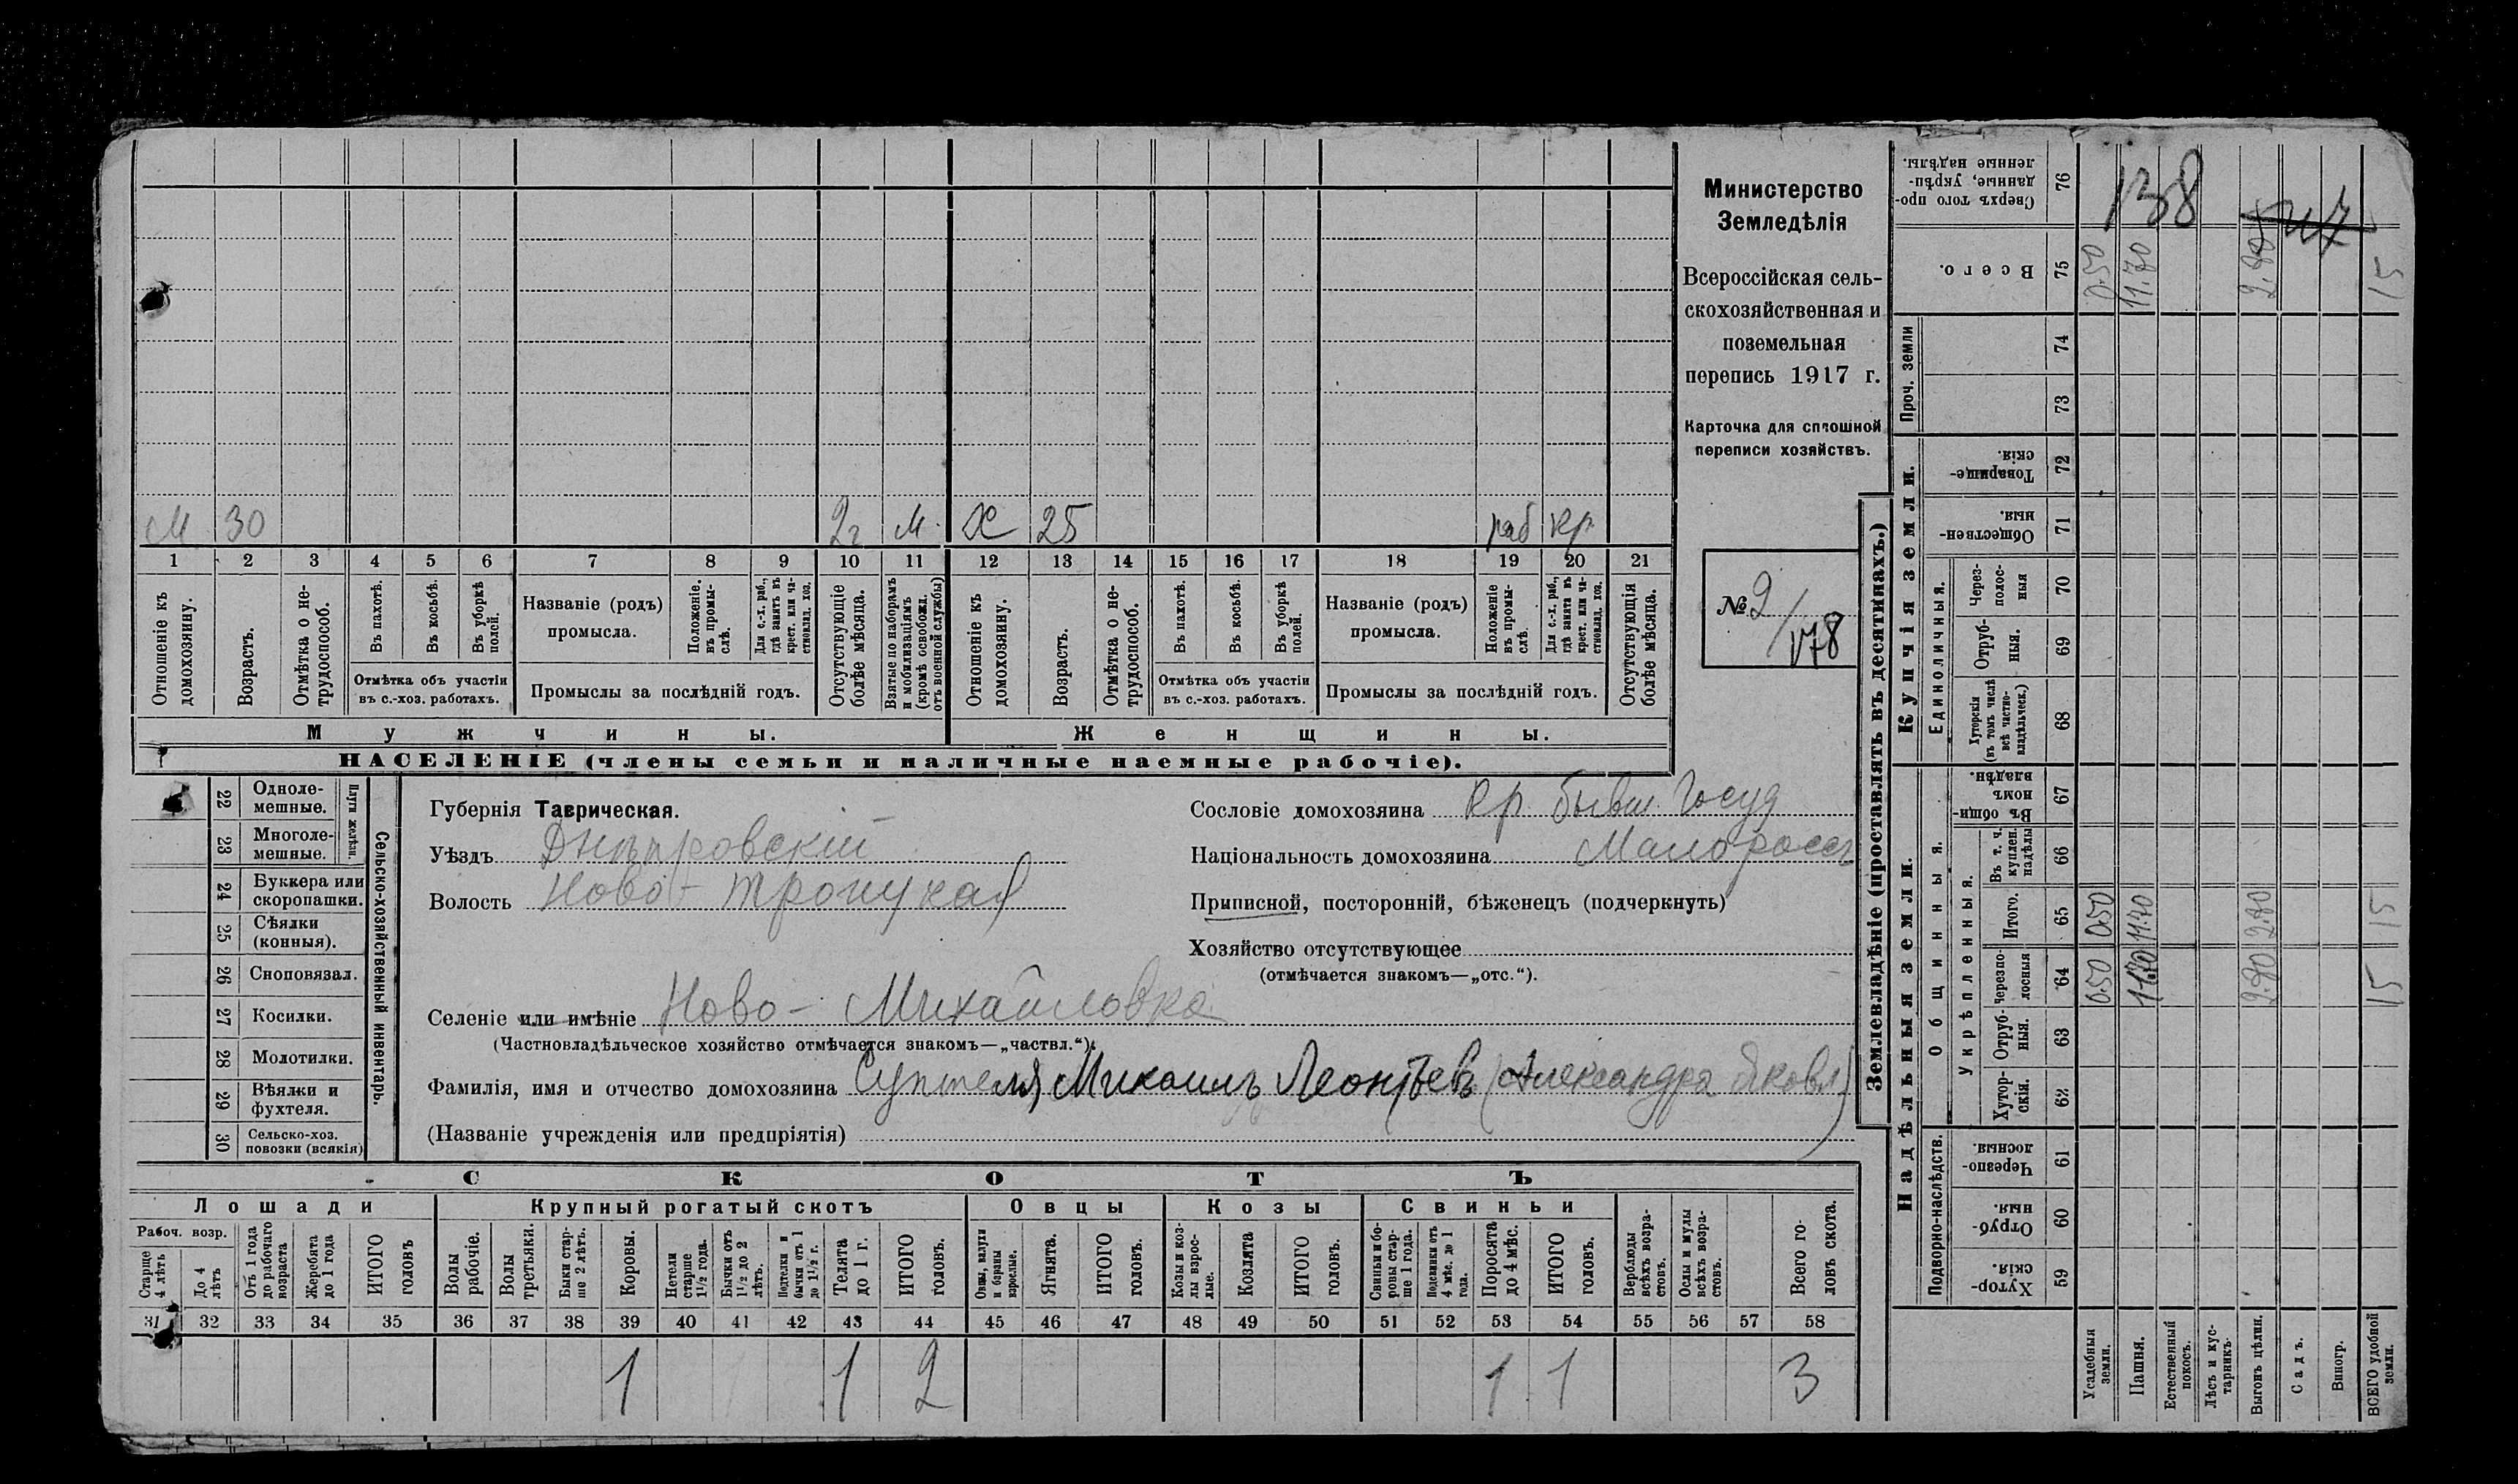 Министерство
Земледѣлія
Всероссійская сель-
скохозяйственная и
поземельная
перепись 1917 г.
Карточка для сплошной
переписи хозяйствъ.
№ 2/178
М 30 2г М. Х 25 раб кр.
1 2 3 4 5 6 7 8 9 10 11 12 13 14 15 16 17 18 19 20 21
Отношеніе къ домохозяину.
Возрастъ.
Отмѣтка о не-трудоспособ.
Въ пахотѣ.
Въ косьбѣ.
Въ уборкѣ полей.
Отмѣтка объ участіи
въ с.-хоз. работахъ.
Названіе (родъ)
промысла.
Положеніе въ промы-слѣ.
Для с.-х. раб., гдѣ занятъ въ крест. или ча-стновлад. хоз.
Промыслы за послѣдній годъ.
Отсутствующіе болѣе мѣсяца.
Взятые по наборамъ и мобилизаціямъ (кромѣ освобожд. отъ военной службы)
Отношеніе къ домохозяину.
Возрастъ.
Отмѣтка о не-трудоспособ.
Въ пахотѣ.
Въ косьбѣ.
Въ уборкѣ полей.
Отмѣтка объ участіи
въ с.-хоз. работахъ.
Названіе (родъ)
промысла.
Положеніе въ промы-слѣ.
Для с.-х. раб., гдѣ занята въ крест. или ча-стновлад. хоз.
Промыслы за послѣдній годъ.
Отсутствующія болѣе мѣсяца.
Мужчины. Женщины.
НАСЕЛЕНІЕ (члены семьи и наличные наемные рабочіе).
22 Одноле-мешные.
23 Многоле-мешные.
Плуги желѣзн.
24 Буккера или скоропашки.
25 Сѣялки (конныя).
26 Сноповязал.
27 Косилки.
28 Молотилки.
29 Вѣялки и фухтеля.
30 Сельско-хоз. повозки (всякія)
Сельско-хозяйственный инвентарь.
Губернія Таврическая.
Уѣздъ Днѣпровскій
Волость Ново-Троицкая
Сословіе домохозяина кр. бывш. Госуд
Національность домохозяина Малороссъ
Приписной, посторонній, бѣженецъ (подчеркнуть)
Хозяйство отсутствующее
(отмѣчается знакомъ—„отс.“).
Селеніе или имѣніе Ново-Михайловка
(Частновладѣльческое хозяйство отмѣчается знакомъ—„частвл.“).
Фамилія, имя и отчество домохозяина Михаилъ Леонтьевъ (Александра Яковл)
(Названіе учрежденія или предпріятія)
СКОТЪ
Лошади Крупный рогатый скотъ Овцы Козы Свиньи
Рабоч. возр.
Старше 4 лѣтъ
До 4 лѣтъ
Отъ 1 года до рабочаго возраста
Жеребята до 1 года
ИТОГО головъ
Волы рабочіе.
Волы третьяки.
Быки стар-ше 2 лѣтъ.
Коровы.
Нетели старше 1½ года.
Бычки отъ 1½ до 2 лѣтъ.
Подтелки и бычки отъ 1 до 1½ г.
Телята до 1 г.
ИТОГО головъ.
Овцы, валухи и бараны взрослые.
Ягнята.
ИТОГО головъ.
Козы и коз-лы взрос-лые.
Козлята
ИТОГО головъ.
Свиньи и бо-ровы стар-ше 1 года.
Подсвинки отъ 4 мѣс. до 1 года.
Поросята до 4 мѣс.
ИТОГО головъ.
Верблюды всѣхъ возра-стовъ.
Ослы и мулы всѣхъ возра-стовъ.
Всего го-ловъ скота.
31 32 33 34 35 36 37 38 39 40 41 42 43 44 45 46 47 48 49 50 51 52 53 54 55 56 57 58
1 1 2 1 1 3
Землевладѣніе (проставлять въ десятинахъ.)
Надѣльныя земли. Купчія земли. Проч. земли
Подворно-наслѣдств.
Общинныя.
Укрѣпленныя.
Единоличныя.
Хутор-скія. 59
Отруб-ныя. 60
Черезпо-лосныя. 61
Хутор-скія. 62
Отруб-ныя. 63
Черезпо-лосныя 64
Итого. 65
Въ т. ч. куплен. надѣлы 66
Въ общи-номъ владѣн. 67
Хуторскія (въ томъ числѣ всѣ частно-владѣльческ.) 68
Отруб-ныя. 69
Через-полос-ныя 70
Обществен-ныя. 71
Товарище-скія. 72
73
74
Всего. 75
Сверхъ того про-данные, укрѣп-ленные надѣлы. 76
138
Усадебныя земли. 0.50 0.50 0.50
Пашня. 11.70 11.70 11.70
Естественный покосъ.
Лѣсъ и кус-тарникъ.
Выгонъ цѣлин. 2.80 2.80 2.80
Садъ.
Виногр.
ВСЕГО удобной земли. 15 15 15